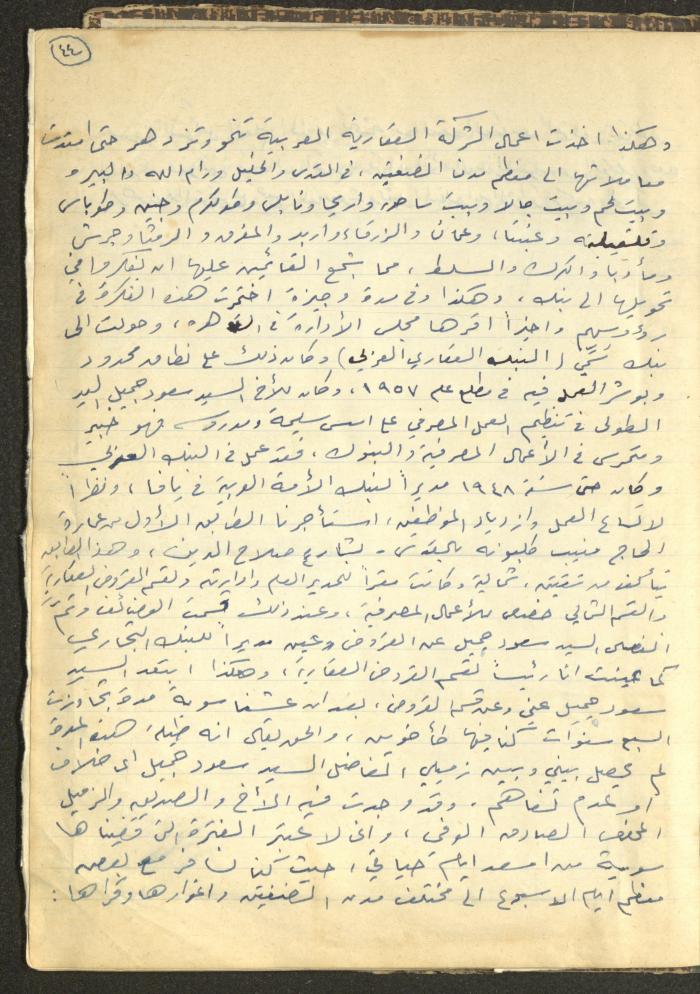 ٤٤
وهكذا اخذت اعمال الشركة العقارية العربية تنمو وتزدهر حتى امتدت
معاملاتها الى معظم مدن الضفتين، في القدس والخليل ورام الله والبيره و
وبيت لحم وبيت جالا وبيت ساحور واريحا ونابلس وطولكرم وجنين وطوباس
وقلقيلية وعنبتا، وعمان والزرقاء واربد والمفرق والرمثا وجرش
ومأدبا والكرك والسلط، مما شجع القائمين عليها ان يفكروا في
تحويلها الى بنك، وهكذا وفي مدة وجيزة اختمرت هذه الفكرة في
رؤوسهم واخيراً اقرها مجلس الأدارة في القاهره، وحولت الى
بنك سُمّي (البنك العقاري العربي) وكان ذلك على نطاق محدود
وبوشر العمل فيه في مطلع عام ١٩٥٧، وكان للأخ السيد سعود جميل اليد
الطولى في تنظيم العمل المصرفي على اسس سليمة ومدروسه فهو خبير
ومتمرس في الأعمال المصرفية والبنوك، فقد عمل في البنك العربي
وكان حتى سنة ١٩٤٨ مديراً لبنك الأمة العربية في يافا، ونظراً
لاتساع العمل وازدياد الموظفين، استأجرنا الطابق الأول من عمارة
الحاج منيب كلبونه بالقدس - بشارع صلاح الدين، وهذا الطابق
يتألف من شقتين، شمالية وكانت مقراً للمدير العام وادارته ولقسم القروض العقارية
والقسم الثاني خصص للأعمال المصرفية، وعند ذلك قسمت الوظائف وتم
انفصال السيد سعود جميل عن القروض وعين مديراً للبنك التجاري
كما عينت انا رئيساً لقسم القروض العقارية، وهكذا ابتعد السيد
سعود جميل عني وعن قسم القروض، بعد ان عشنا سوية مدة تجاوزت
السبع سنوات كنا فيها كأخوين، والحق يقال انه طيلة هذه المدة
لم يحصل بيني وبين زميلي الفاضل السيد سعود جميل اي خلاف
او عدم تفاهم، وقد وجدت فيه الأخ والصديق والزميل
المخلص الصادق الوفي، واني لا عتبر الفترة التي قضيناها
سوية من اسعد ايام حياتي، حيث كنا نسافر مع بعض
معظم ايام الاسبوع الى مختلف مدن الضفتين واغوارها وقراها: